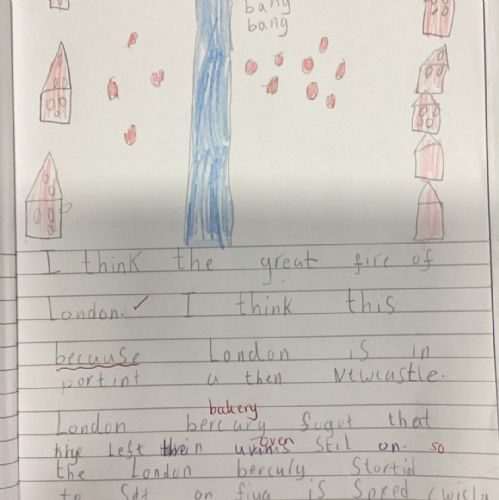 bang
bang
I think the great fire of
London. I think this
because London is in
portint a then Newcastle.
bakery
London bercury fogot that
left oven stil on. so
the London berculy Startid
to on is Spred